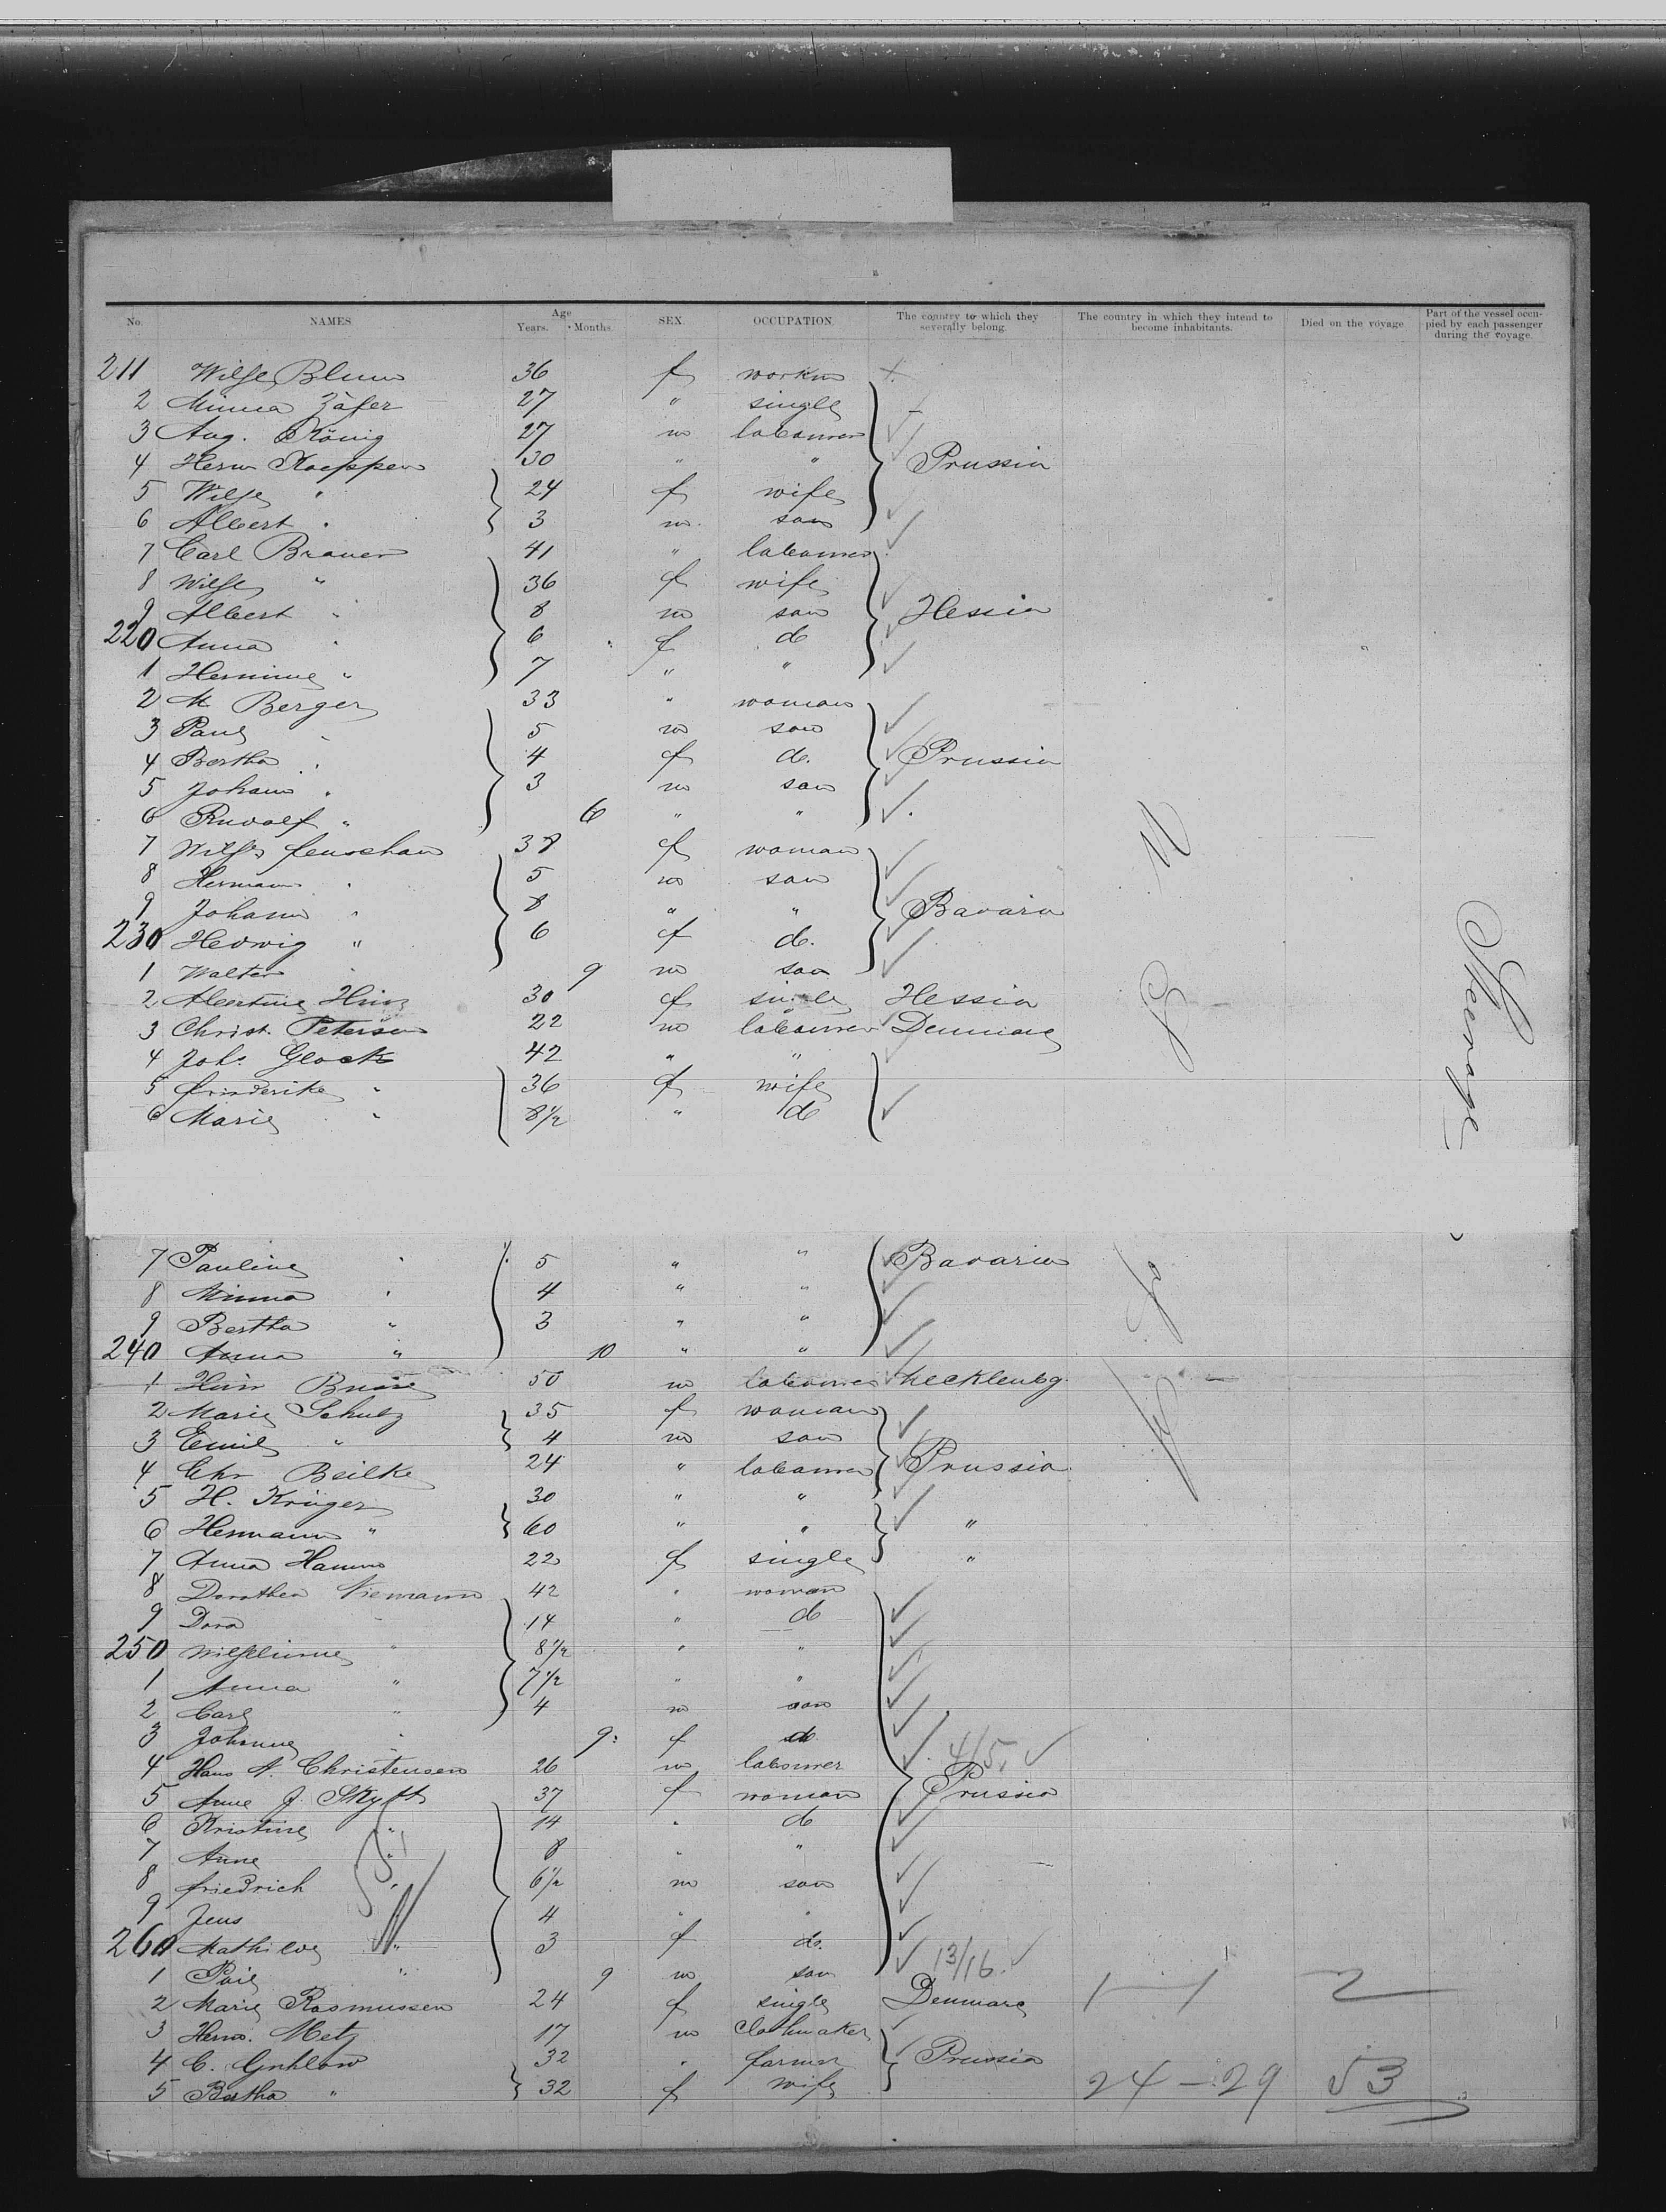 No. NAMES. Age Years. Months. SEX. OCCUPATION. The country to which they severally belong. The country in which they intend to become inhabitants. Died on the voyage. Part of the vessel occupied by each passenger during the voyage.
211 Wilh. Blum 36 f
2 Minna 27 " single
3 Aug. König 27 m labourer
4 Herm Koeppen 30 " " Prussia
5 Wilh. " 24 f wife
6 Albert " 3 m son
7 Carl Brauer 41 " labourer
8 Wilh. " 36 f wife
9 Albert " 8 m son Hessia
220 Anna " 6 f d
1 Hermine " 7 " "
2 M Berger 33 " woman
3 Paul " 5 m son
4 Bertha " 4 f d. Prussia
5 Johann " 3 m son
6 Rudolf " 6 " "
7 Wilh. 38 f woman
8 Hermann " 5 m son
9 Johann " 8 " " Bavaria
230 Hedwig " 6 f d.
1 Walter " 9 m son
2 Albertine Hinz 30 f single Hessia
3 Christ. Petersen 22 m labourer Denmark
4 Joh. Glock 42 " "
5 Friederike " 36 f wife
6 Marie " 8 1/2 " d
Steerage
7 Pauline " 5 " " Bavaria
8 Minna " 4 " "
9 Bertha " 3 " "
240 Anna " 10 " "
1 Heinr Busse 50 m labourer Mecklenbg.
2 Marie Schulz 35 f woman
3 Emil " 4 m son
4 Chr Beilke 24 " labourer Prussia
5 H. Krüger 30 " "
6 Hermann " 60 " " "
7 Anna Hamm 22 f single "
8 Dorothea Niemann 42 " woman
9 Dora " 14 " d
250 Wilhelmine " 8 1/2 " "
1 Anna " 7 1/2 " "
2 Carl " 4 m son
3 Johanne " 9 f d
4 Hans N. Christensen 26 m labourer 4/5.
5 Anne J. Skytt 37 f woman Prussia
6 Kristine " 14 " d
7 Anne " 8 " "
8 Friedrich " 6 1/2 m son
9 Jens " 4 " "
260 Mathilde " 3 f d.
1 " 9 m son 13/16.
2 Marie Rasmussen 24 f single Denmark 2
3 Herm. Metz 17 m clothmaker
4 C. Guhlow 32 " farmer Prussia
5 Bertha " 32 f wife 24 - 29 53